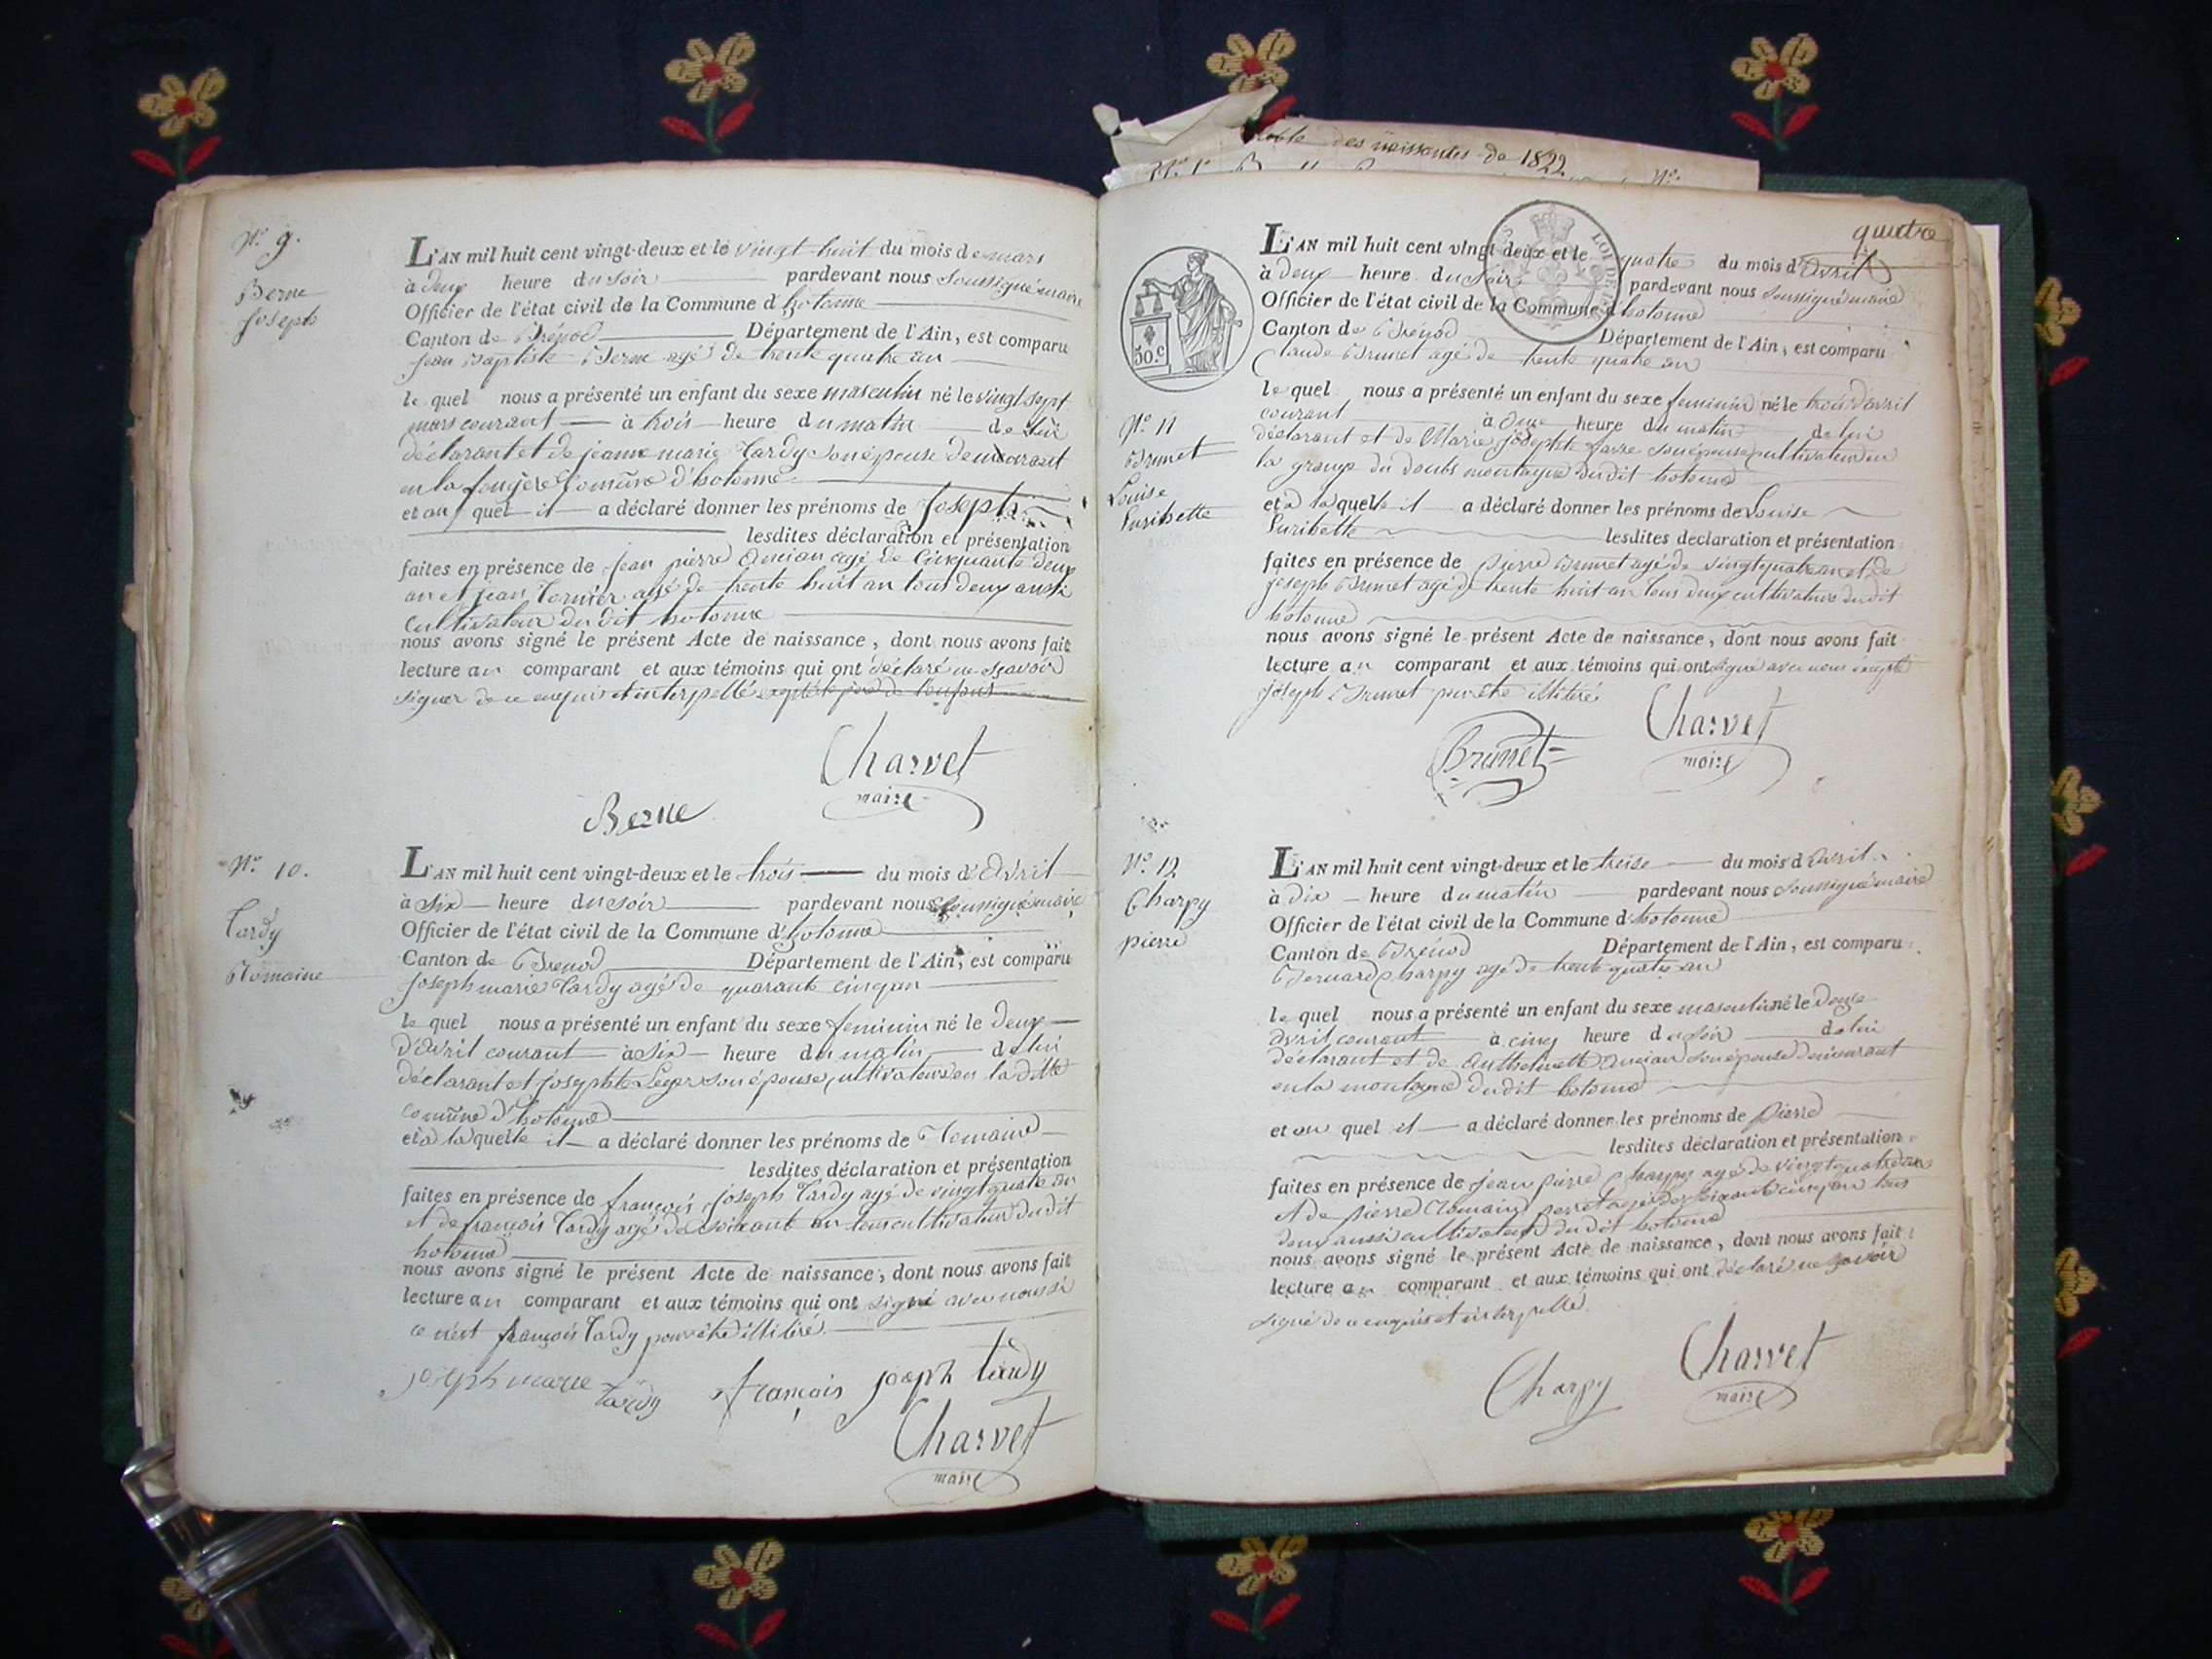 table des naissances de 1822
N.º 9.
Berne
Joseph
L'AN mil huit cent vingt-deux et le vingt huit du mois de mars
à deux heure du soir pardevant nous soussigné maire
Officier de l'état civil de la Commune d'hotonne
Canton de Brénod Département de l'Ain, est comparu
Jean Baptiste Berne agé de trente quatre an
le quel nous a présenté un enfant du sexe masculin né le vingt sept
mars courant à trois heure du matin de lui
déclarant et de jeanne marie Tardy son épouse demeurant
en la fougère Comũne d'hotonne
et au quel il a déclaré donner les prénoms de Joseph
lesdites déclaration et présentation
faites en présence de Jean pierre Ancian agé de Cinquante deux
an et jean Tornier agé de trente huit an tous deux aussi
cultivateur du dit hotonne
nous avons signé le présent Acte de naissance, dont nous avons fait
lecture au comparant et aux témoins qui ont déclaré ne sçavoir
signer de ce enquis et interpellé excepté le père de l'enfant
Charvet
maire
Berne
N.º 10.
Tardy
Romaine
L'AN mil huit cent vingt-deux et le trois du mois d'Avril
à six heure du soir pardevant nous soussigné maire
Officier de l'état civil de la Commune d'hotonne
Canton de Brenod Département de l'Ain, est comparu
Joseph marie Tardy agé de quarante cinq an
le quel nous a présenté un enfant du sexe feminin né le deux
d'Avril courant à six heure du matin de lui
déclarant et josephte Leger son épouse cultivateurs en la ditte
comũne d'hotonne
et à la quelle il a déclaré donner les prénoms de Romaine
lesdites déclaration et présentation
faites en présence de françois joseph Tardy agé de vingt quatre an
et de françois Tardy agé de soixante an tous cultivateur du dit
hotonne
nous avons signé le présent Acte de naissance, dont nous avons fait
lecture au comparant et aux témoins qui ont signé avec nous si
ce n'est françois Tardy pour être illitéré
joseph marie tardy françois joseph tardy
Charvet
maire
quatre
50.c
L'AN mil huit cent vingt-deux et le quatre du mois d'Avril
à deux heure du soir pardevant nous soussigné maire
Officier de l'état civil de la Commune d'hotonne
Canton de Brénod Département de l'Ain, est comparu
Claude Brunet agé de trente quatre an
N.º 11
Brunet
Louise
Surihette
le quel nous a présenté un enfant du sexe feminin né le trois d'avril
courant à onze heure du matin de lui
déclarant et de Marie josephte favre son épouse cultivateur en
la grange du doubs montagne du dit hotonne
et à la quelle il a déclaré donner les prénoms de Louise
Surihette lesdites déclaration et présentation
faites en présence de Pierre Brunet agé de vingt quatre an et de
joseph Brunet agé de trente huit an tous deux cultivateur du dit
hotonne
nous avons signé le présent Acte de naissance, dont nous avons fait
lecture au comparant et aux témoins qui ont signé avec nous excepté
joseph Brunet pour être illitéré
Brunet Charvet
maire
N.º 12
Charpy
pierre
L'AN mil huit cent vingt-deux et le treise du mois d'Avril
à dix heure du matin pardevant nous soussigné maire
Officier de l'état civil de la Commune d'hotonne
Canton de Brénod Département de l'Ain, est comparu
Bernard Charpy agé de trente quatre an
le quel nous a présenté un enfant du sexe masculin né le douze
avril courant à cinq heure du soir de lui
déclarant et de Anthelmette Ancian son épouse demeurant
en la montagne du dit hotonne
et au quel il a déclaré donner les prénoms de Pierre
lesdites déclaration et présentation
faites en présence de jean pierre Charpy agé de vingt quatre an
et de pierre Romain perret agé de soixante cinq an tous
deux aussi cultivateur du dit hotonne
nous avons signé le présent Acte de naissance, dont nous avons fait
lecture au comparant et aux témoins qui ont déclaré ne savoir
signé de ce enquis et interpellé
Charpy Charvet
maire